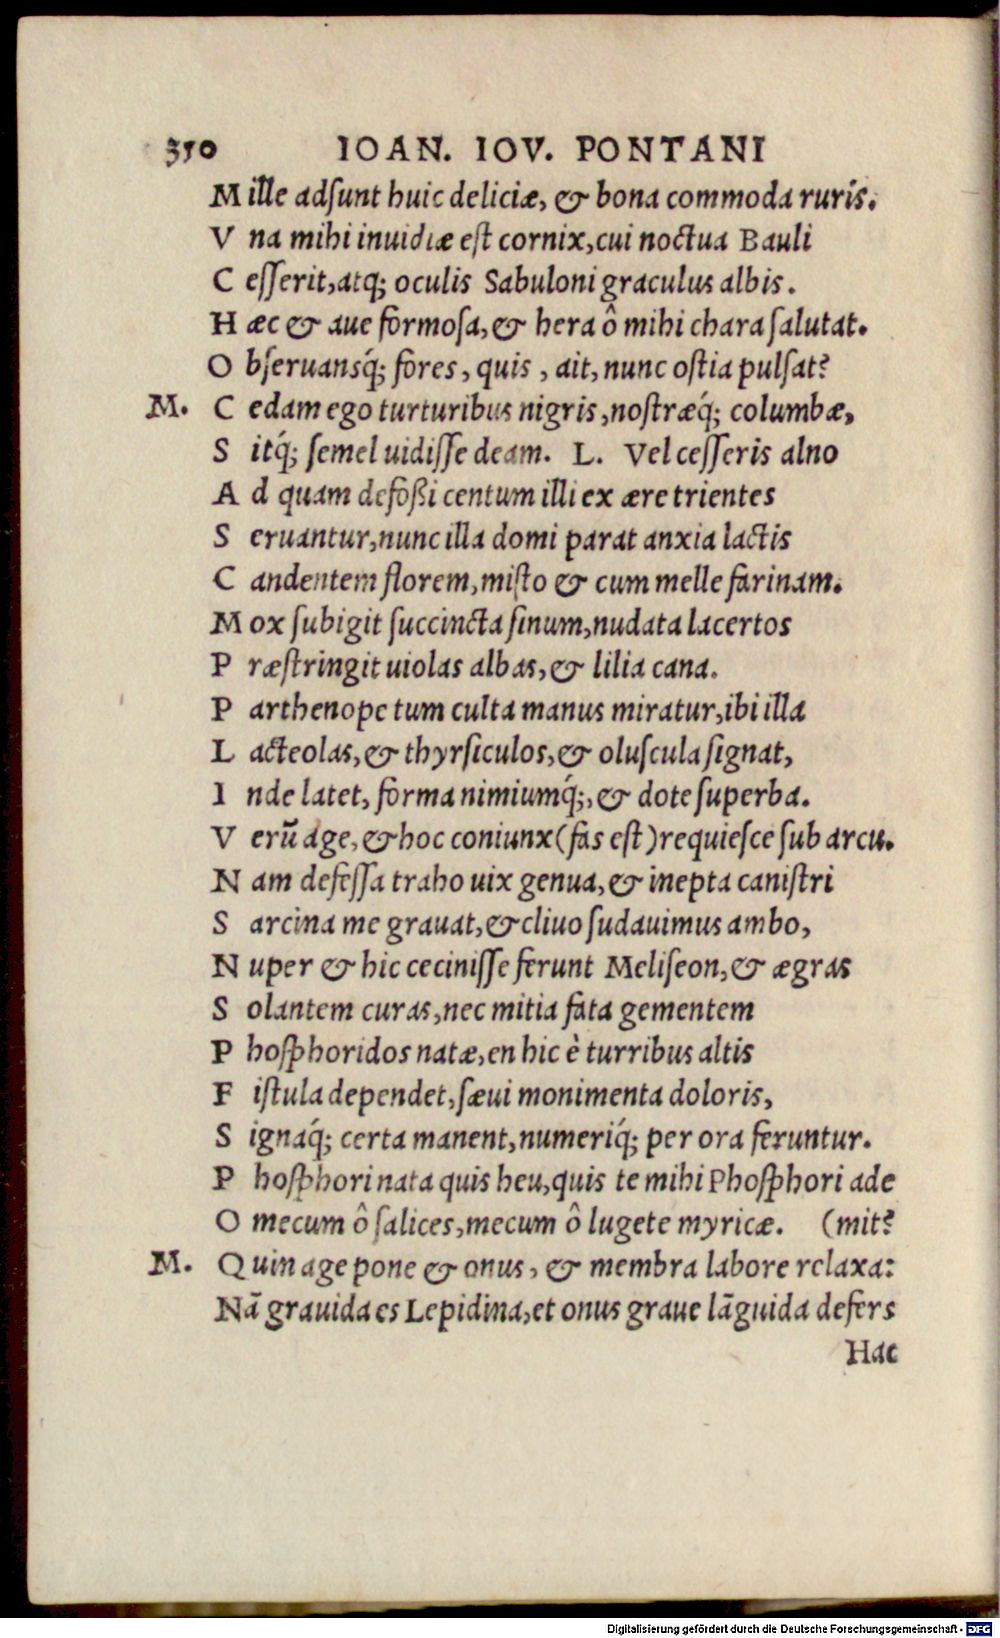 350 IOAN. IOV. PONTANI
Mille adſunt huic deliciæ, & bona commoda ruris.
Vna mihi inuidiæ eſt cornix, cui noctua Bauli
Ceſſerit, atq; oculis Sabuloni graculus albis.
Hæc & aue formoſa, & hera ô mihi chara ſalutat.
Obſeruansq́; fores, quis, ait, nunc oſtia pulſat?
M. Cedam ego turturibus nigris, noſtræq́; columbæ,
Sitq́; ſemel uidiſſe deam. L. Vel ceſſeris alno
Ad quam defoßi centum illi ex ære trientes
Seruantur, nunc illa domi parat anxia lactis
Candentem florem, miſto & cum melle farinam.
Mox ſubigit ſuccincta ſinum, nudata lacertos
Præſtringit uiolas albas, & lilia cana.
Parthenope tum culta manus miratur, ibi illa
Lacteolas, & thyrſiculos, & oluſcula ſignat,
Inde latet, forma nimiumq́;, & dote ſuperba.
Verũ age, & hoc coniunx (fas eſt) requieſce ſub arcu.
Nam defeſſa traho uix genua, & inepta caniſtri
Sarcina me grauat, & cliuo ſudauimus ambo,
Nuper & hic ceciniſſe ferunt Meliſeon, & ægras
Solantem curas, nec mitia fata gementem
Phoſphoridos natæ, en hic è turribus altis
Fiſtula dependet, ſæui monimenta doloris,
Signaq́; certa manent, numeriq́; per ora feruntur.
Phoſphori nata quis heu, quis te mihi Phoſphori ade
O mecum ô ſalices, mecum ô lugete myricæ. (mit?
M. Quin age pone & onus, & membra labore relaxa:
Nã grauida es Lepidina, et onus graue lãguida defers
Hac
Digitalisierung gefördert durch die Deutsche Forschungsgemeinschaft - DFG